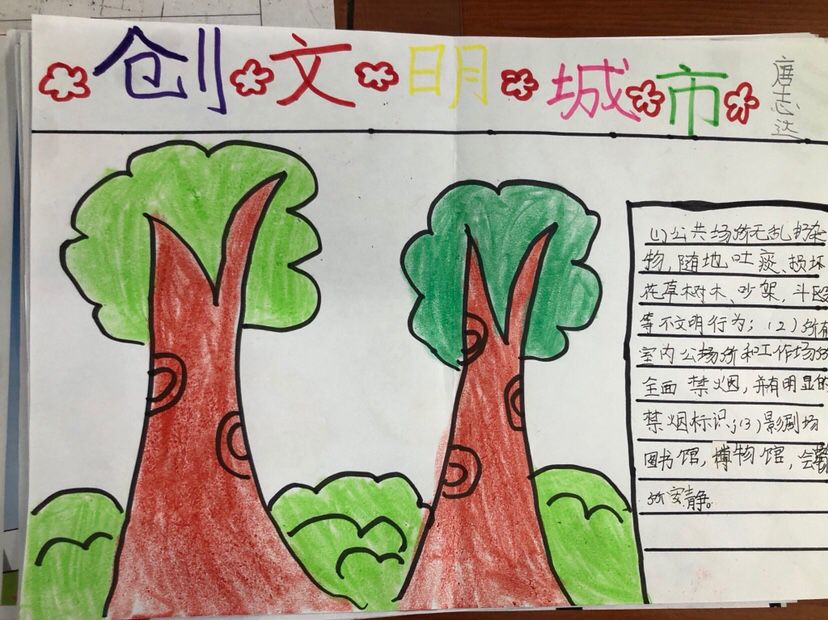 创文明城市
唐志达
(1)公共场所无乱扔杂
物,随地吐痰、损坏
花草树木、吵架、斗殴
等不文明行为;(2)所有
室内公共场所和工作场所
全面禁烟,并有明显的
禁烟标识;(3)影剧场
图书馆,博物馆,会
所安静。